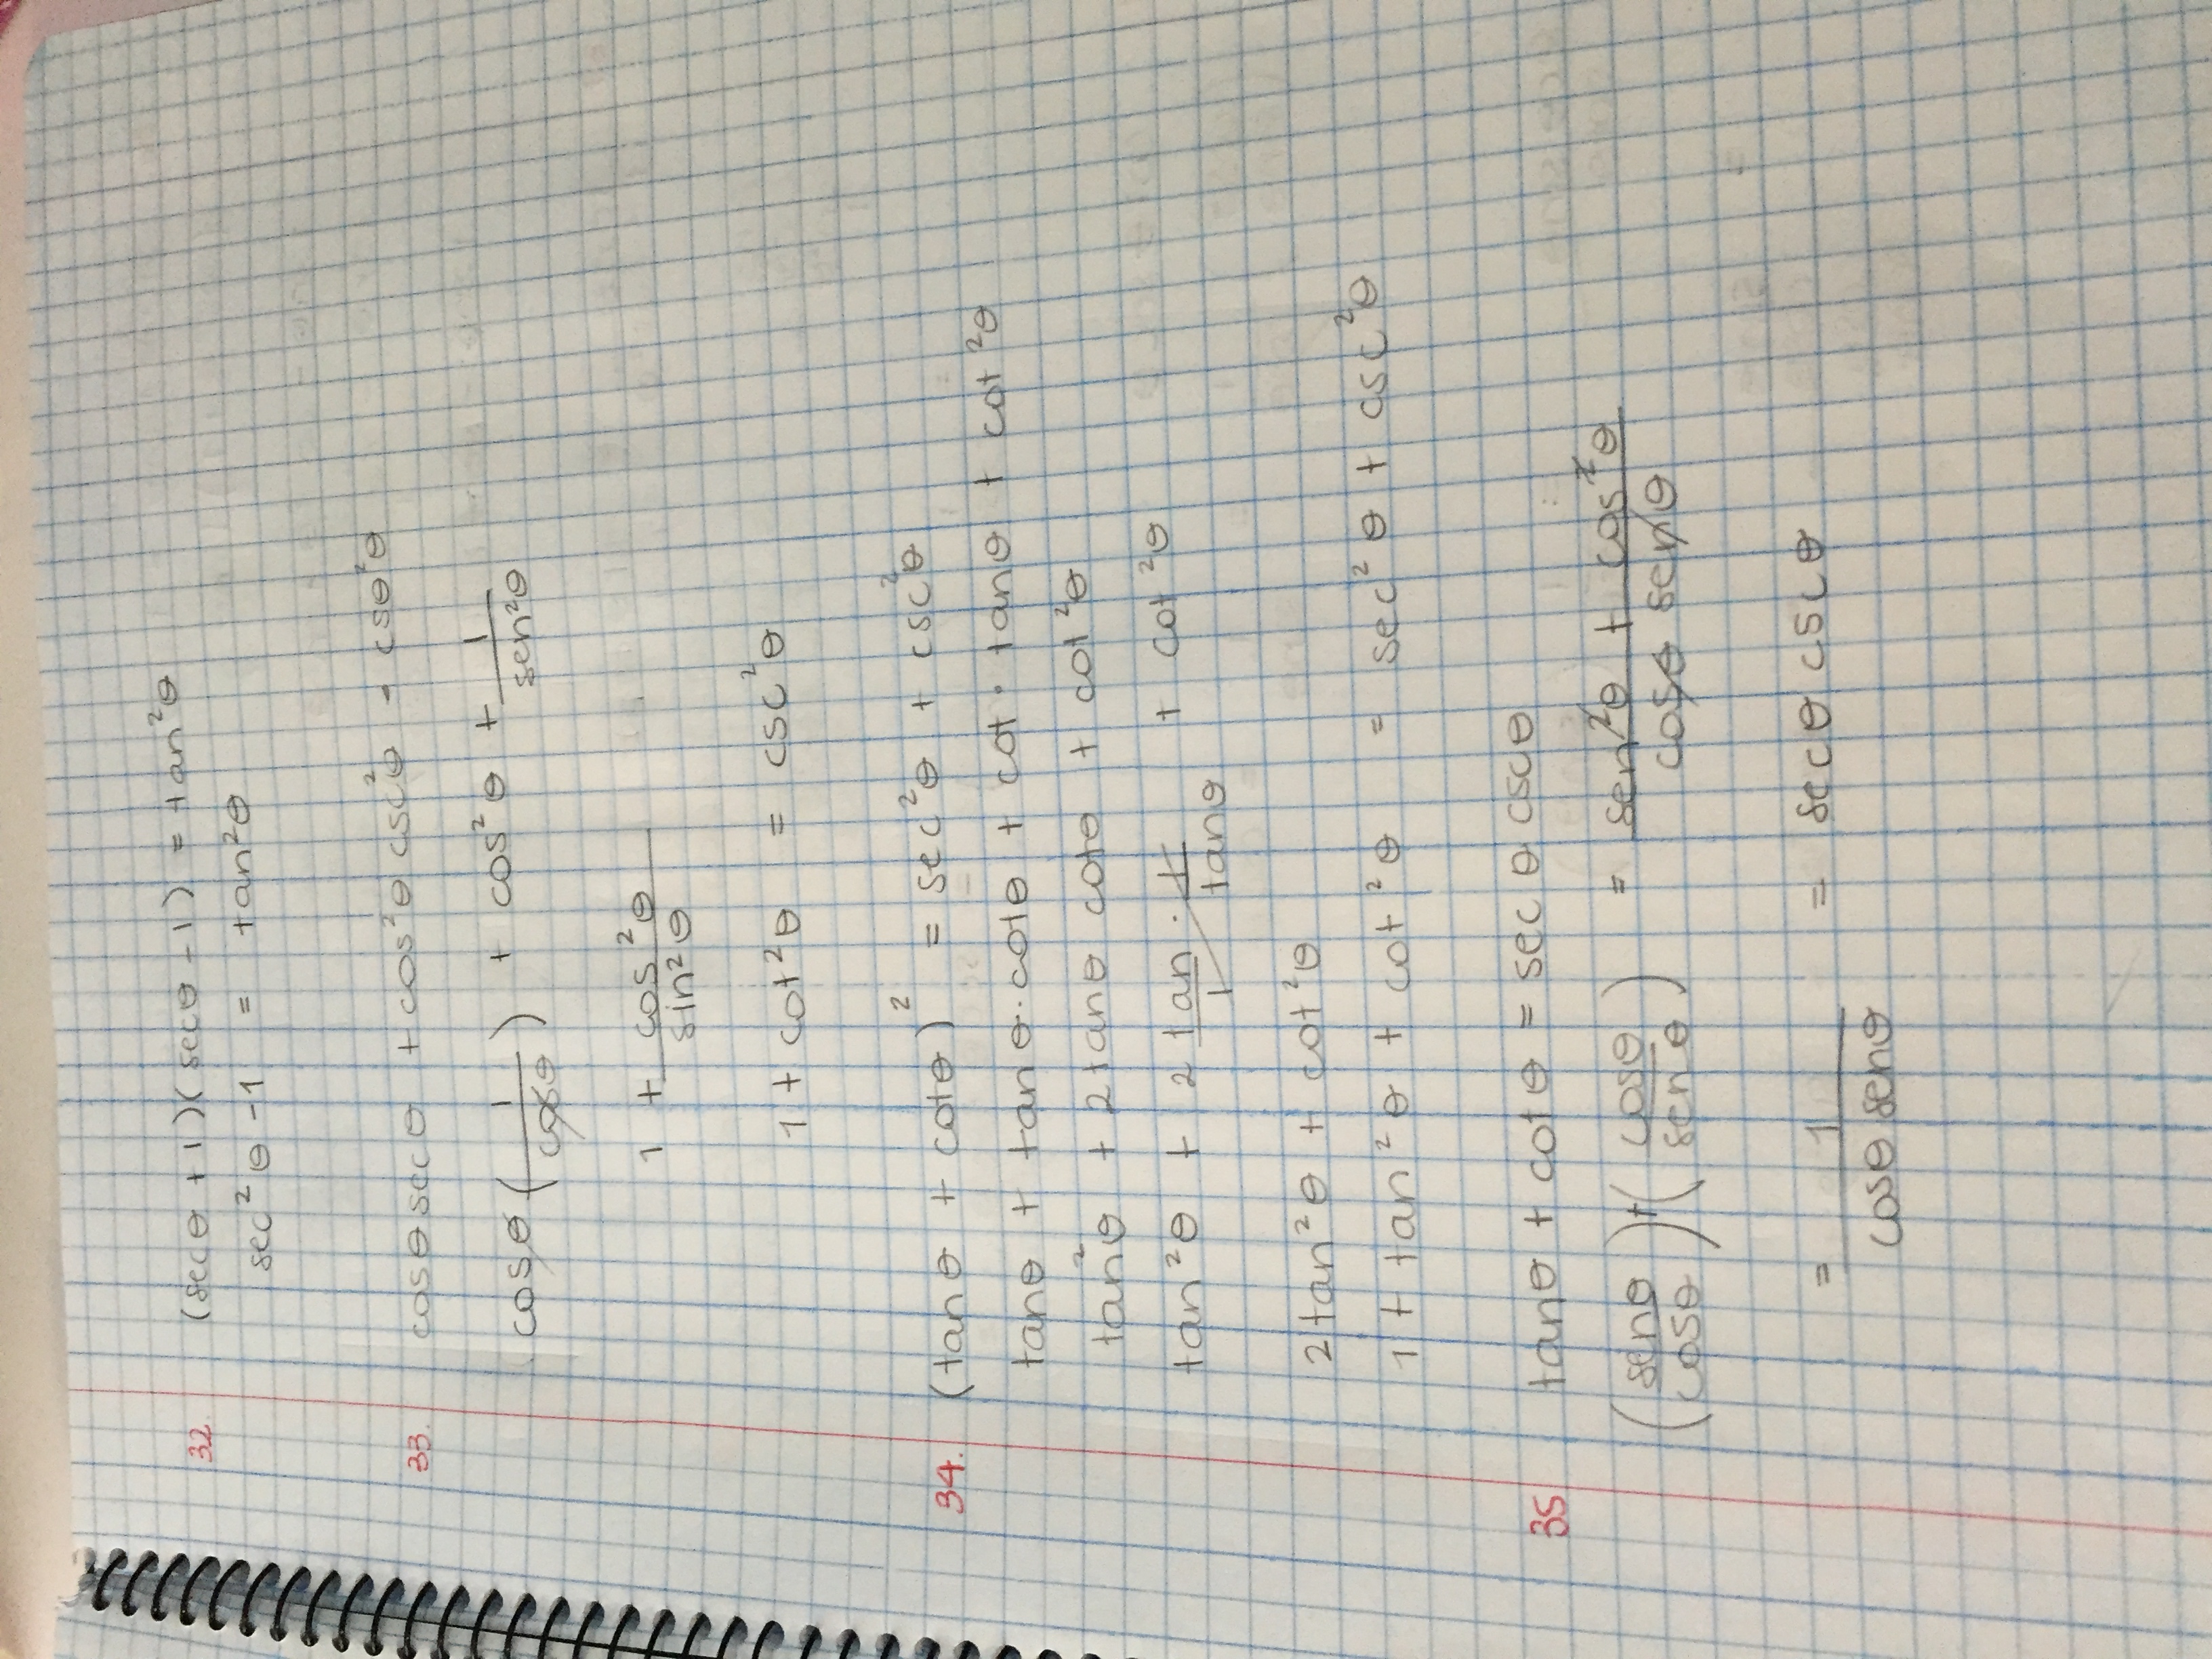 32. (secθ + 1)(secθ - 1) = tan²θ
sec²θ - 1 = tan²θ
33. cosθ secθ + cos²θ csc²θ = csθ²θ
cosθ (1/cosθ) + cos²θ + 1/sen²θ
1 + cos²θ/sin²θ
1 + cot²θ = csc²θ
34. (tanθ + cotθ)² = sec²θ + csc²θ
tanθ + tanθ·cotθ + cot·tanθ + cot²θ
tan²θ + 2tanθ cotθ + cot²θ
tan²θ + 2 tan/1 · 1/tanθ + cot²θ
2tan²θ + cot²θ
1 + tan²θ + cot²θ = sec²θ + csc²θ
35 tanθ + cotθ = secθ cscθ
(senθ/cosθ) + (cosθ/senθ) = sen²θ + cos²θ/cosθ senθ
= 1/cosθ senθ = secθ cscθ